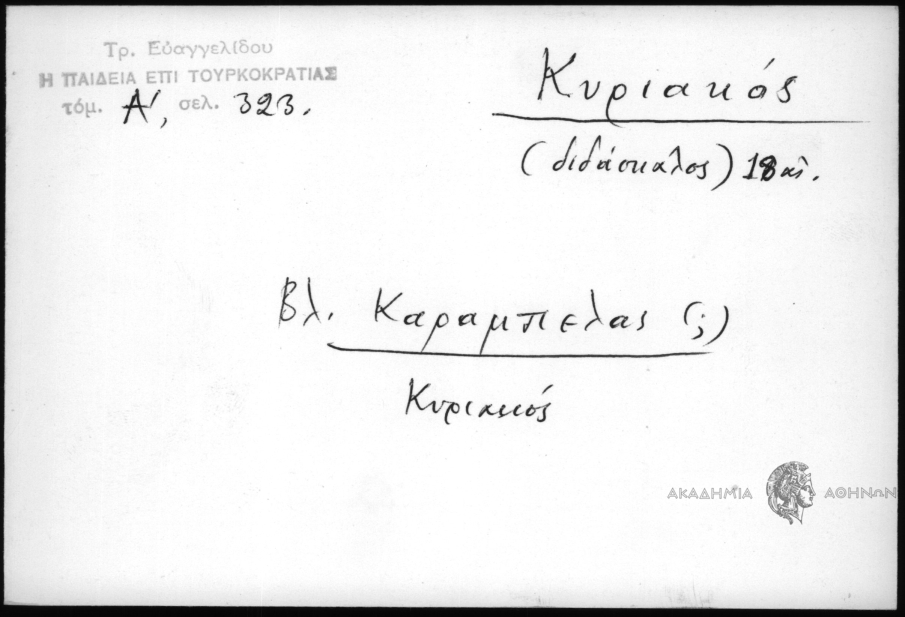 Τρ. Εὐαγγελίδου
Η ΠΑΙΔΕΙΑ ΕΠΙ ΤΟΥΡΚΟΚΡΑΤΙΑΣ
τόμ. Α', σελ. 323.
Κυριακός
(διδάσκαλος) 18 αἰ.
Βλ. Καραμπελας (;)
Κυριακός
ΑΚΑΔΗΜΙΑ ΑΘΗΝΩΝ